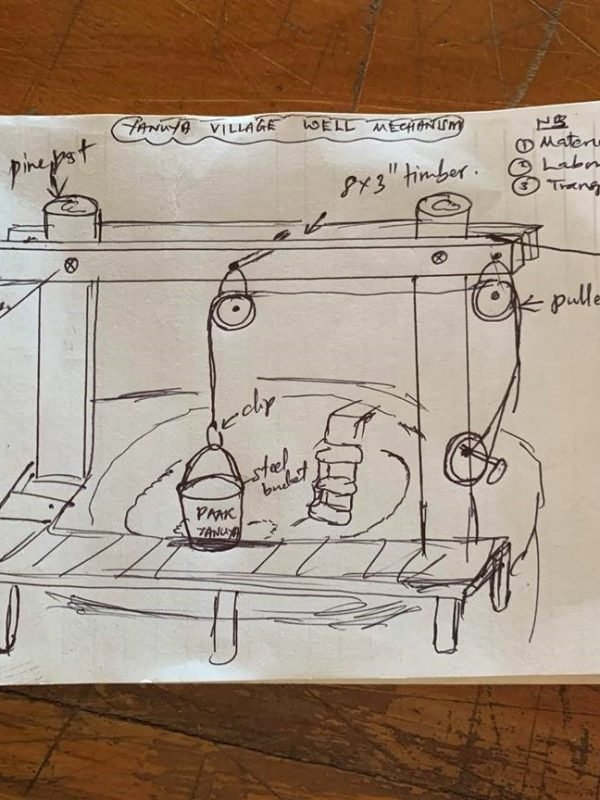 YANUYA VILLAGE WELL MECHANISM
NB
① Materi
② Labou
③ Trans
pine post
8x3" timber.
pulle
clip
steel
bucket
PAAK
YANUYA